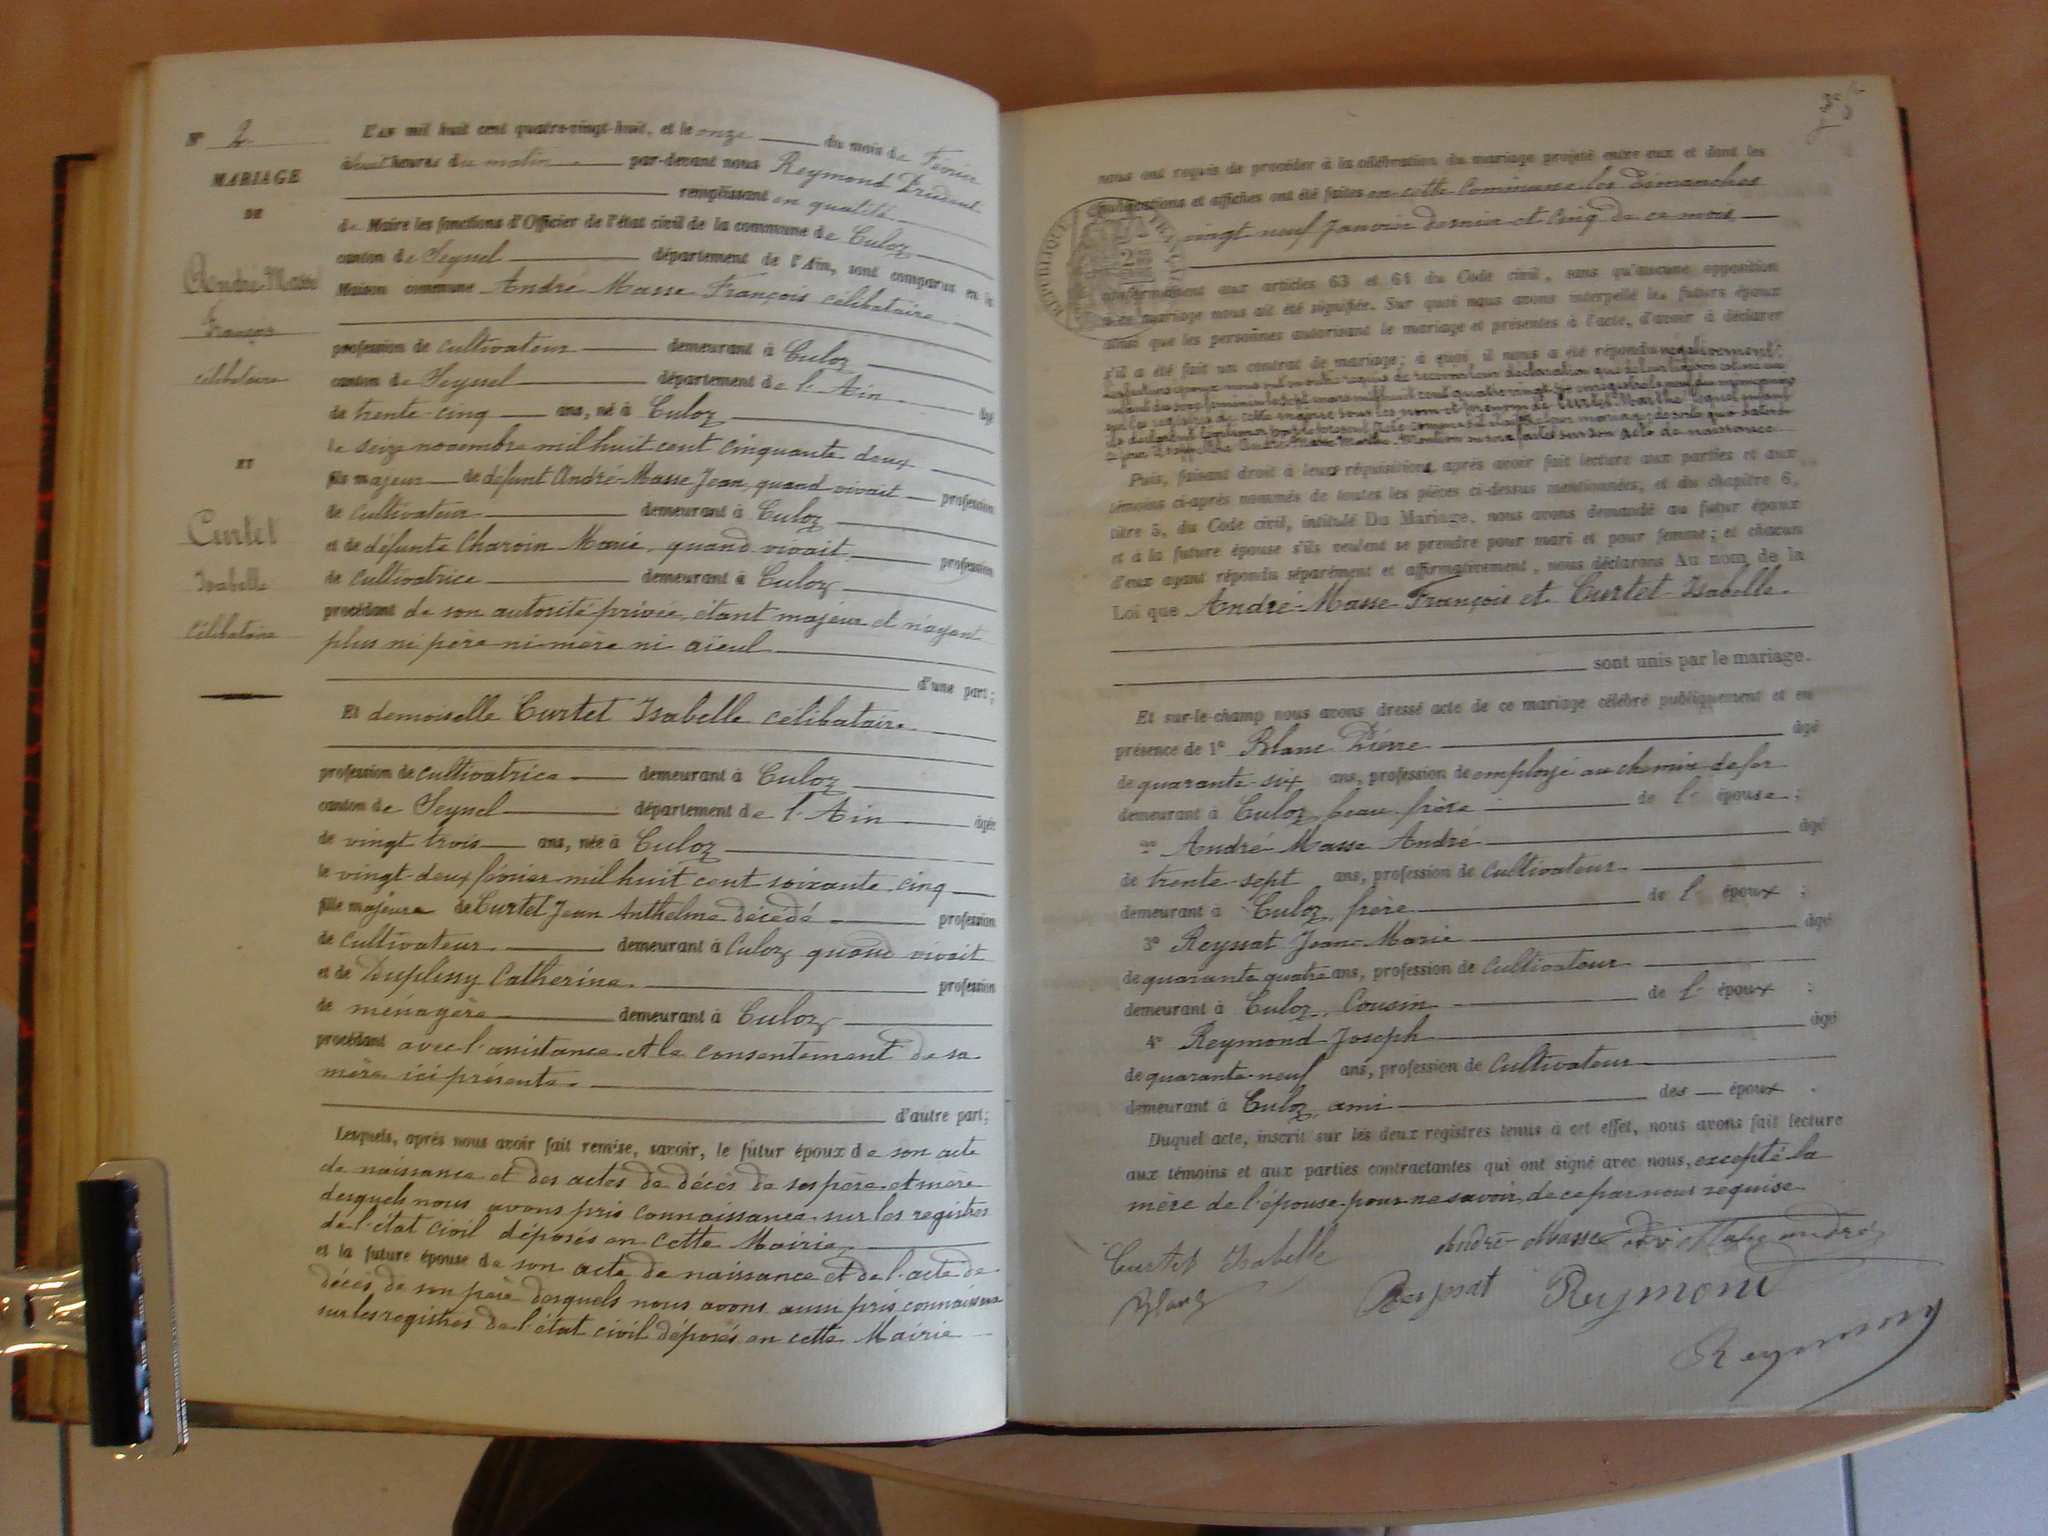 N° 2
MARIAGE
DE
André-Masse
François
célibataire
ET
Curtet
Isabelle
Célibataire
L'AN mil huit cent quatre-vingt-huit, et le onze du mois de Février
à huit heures du matin par-devant nous Reymond Prudent
remplissant en qualité
de Maire les fonctions d'Officier de l'état civil de la commune de Culoz
canton de Seyssel département de l'Ain, sont comparus en la
Maison commune André Masse François célibataire
profession de cultivateur demeurant à Culoz
canton de Seyssel département de l'Ain âgé
de trente-cinq ans, né à Culoz
le seize novembre mil huit cent cinquante deux
fils majeur de défunt André-Masse Jean, quand vivait profession
de Cultivateur demeurant à Culoz
et de défunte Charvin Marie, quand vivait profession
de Cultivatrice demeurant à Culoz
procédant de son autorité privée, étant majeur et n'ayant
plus ni père ni mère ni aïeul
d'une part;
Et demoiselle Curtet Isabelle célibataire
profession de cultivatrice demeurant à Culoz
canton de Seyssel département de l'Ain âgée
de vingt trois ans, née à Culoz
le vingt-deux février mil huit cent soixante-cinq
fille majeure de Curtet Jean Anthelme décédé profession
de Cultivateur demeurant à Culoz quand vivait
et de Duplessy Catherine profession
de ménagère demeurant à Culoz
procédant avec l'assistance et le consentement de sa
mère ici présente.
d'autre part;
Lesquels, après nous avoir fait remise, savoir, le futur époux de son acte
de naissance et des actes de décès de ses père et mère
desquels nous avons pris connaissance sur les registres
de l'état civil déposés en cette Mairie
et la future épouse de son acte de naissance et de l'acte de
décès de son père desquels nous avons aussi pris connaissance
sur les registres de l'état civil déposés en cette Mairie
nous ont requis de procéder à la célébration du mariage projeté entre eux et dont les
publications et affiches ont été faites en cette Commune les Dimanches
vingt neuf Janvier dernier et cinq de ce mois
conformément aux articles 63 et 64 du Code civil, sans qu'aucune opposition
à ce mariage nous ait été signifiée. Sur quoi nous avons interpellé les futurs époux
ainsi que les personnes autorisant le mariage et présentes à l'acte, d'avoir à déclarer
s'il a été fait un contrat de mariage; à quoi, il nous a été répondu négativement.
Les futurs époux nous ont en outre requis de recevoir leur déclaration que de leur liaison est né un
enfant du sexe féminin le sept mars mil huit cent quatre vingt
sur les registres de cette mairie sous les nom et prénom de Curtet Marthe lequel enfant
Mention en sera faite sur son acte de naissance.
Puis, faisant droit à leurs réquisitions, après avoir fait lecture aux parties et aux
témoins ci-après nommés de toutes les pièces ci-dessus mentionnées, et du chapitre 6,
titre 5, du Code civil, intitulé Du Mariage, nous avons demandé au futur époux
et à la future épouse s'ils veulent se prendre pour mari et pour femme; et chacun
d'eux ayant répondu séparément et affirmativement, nous déclarons Au nom de la
Loi que André-Masse François et Curtet Isabelle.
sont unis par le mariage.
Et sur-le-champ nous avons dressé acte de ce mariage célébré publiquement et en
présence de 1° Blanc Pierre âgé
de quarante-six ans, profession de employé au chemin de fer
demeurant à Culoz, beau-frère de l'épouse;
2° André Masse André âgé
de trente-sept ans, profession de cultivateur
demeurant à Culoz, frère de l'époux;
3° Reyssat Jean-Marie âgé
de quarante quatre ans, profession de Cultivateur
demeurant à Culoz, Cousin de l'époux;
4° Reymond Joseph âgé
de quarante-neuf ans, profession de Cultivateur
demeurant à Culoz, ami des époux.
Duquel acte, inscrit sur les deux registres tenus à cet effet, nous avons fait lecture
aux témoins et aux parties contractantes qui ont signé avec nous, excepté la
mère de l'épouse pour ne savoir, de ce par nous requise
Curtet Isabelle André Masse
Blanc Reyssat Reymond
Reymond